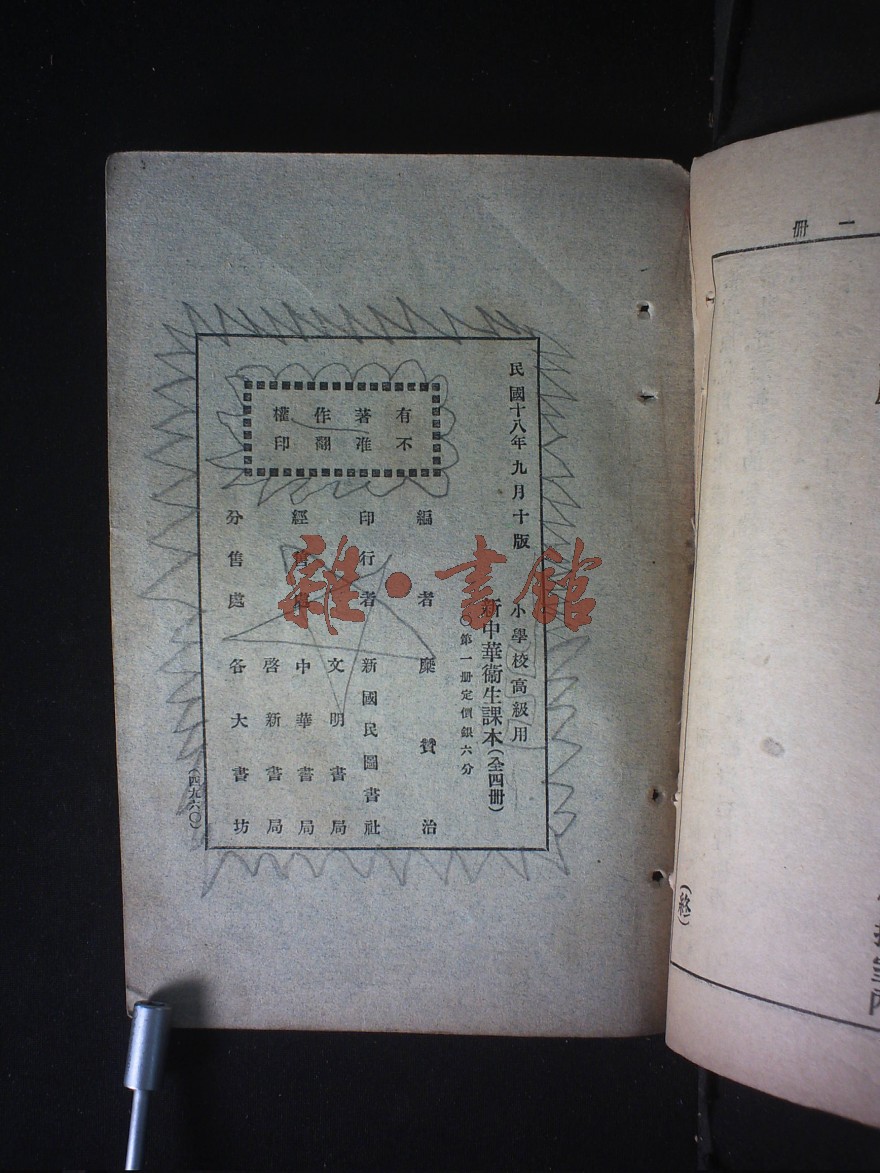 民國十八年九月十版
小學校高級用
新中華衞生課本(全四册)
◎第一册定價銀六分
有著作權
不准翻印
編者 糜贊治
印行者 新國民圖書社
文明書局
經售處 中華書局
啓新書局
分售處 各大書坊
(四九六〇)
雜·書館
一册
(終)